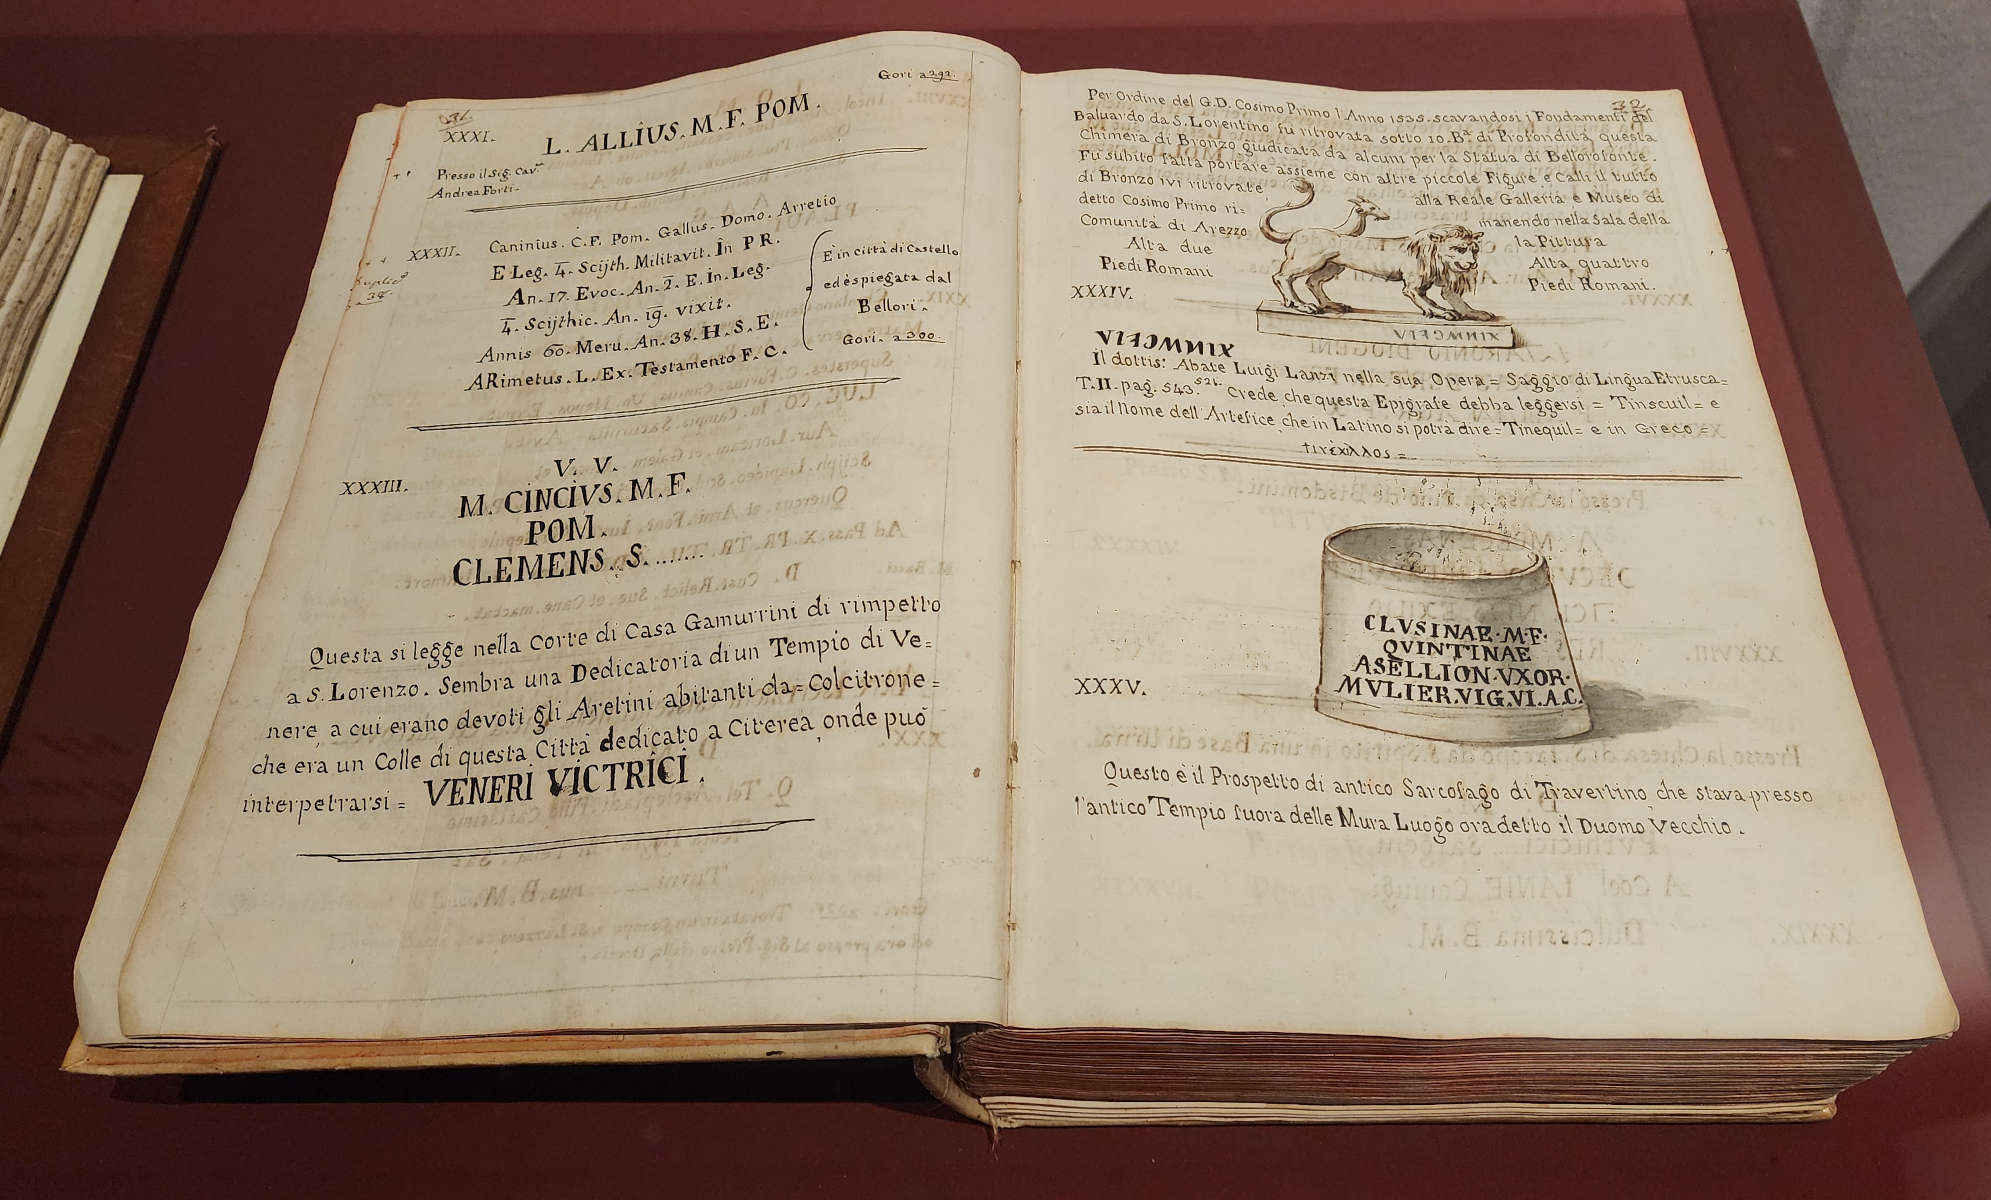 Gori a 292.
31.
XXXI.
L. ALLIUS. M. F. POM.
Presso il Sig. Cav.
Andrea Forti.
XXXII.
Caninius. C. F. Pom. Gallus. Domo. Arretio
E Leg. 4. Scijth. Militavit. In PR.
An. 17. Evoc. An. 2. E. In. Leg.
4. Scijthic. An. 19. vixit.
Annis 60. Meru. An. 38. H. S. E.
ARimetus. L. Ex. Testamento F. C.
E' in città di Castello
ed è spiegata dal
Bellori.
Gori. a 300.
38.
XXXIII.
V. V.
M. CINCIVS. M. F.
POM.
CLEMENS. S. .......
Questa si legge nella Corte di Casa Gamurrini di rimpetto
a S. Lorenzo. Sembra una Dedicatoria di un Tempio di Ve=
nere, a cui erano devoti gli Aretini abitanti da= Colcitrone=
che era un Colle di questa Città dedicato a Citerea, onde può
interpetrarsi = VENERI VICTRICI.
32.
Per Ordine del G. D. Cosimo Primo l'Anno 1535. scavandosi i Fondamenti del
Baluardo da S. Lorentino fu ritrovata sotto 10. B.a di Profondità questa
Chimera di Bronzo giudicata da alcuni per la Statua di Bellorofonte.
Fu subito fatta portare assieme con altre piccole Figure e Calli il tutto
di Bronzo ivi ritrovate, alla Reale Galleria e Museo di
detto Cosimo Primo ri= manendo nella Sala della
Comunità di Arezzo la Pittura
Alta due Alta quattro
Piedi Romani Piedi Romani.
XXXIV.
Il dottis: Abate Luigi Lanzi nella sua Opera = Saggio di Lingua Etrusca =
T. II. pag. 543. 526. Crede, che questa Epigrafe debba leggersi = Tinscuil = e
sia il Nome dell'Artefice, che in Latino si potrà dire = Tinequil = e in Greco =
XXXV.
CLVSINAE·M·F·
QVINTINAE
ASELLION·VXOR·
MVLIER·VIG·VI·A·C·
Questo è il Prospetto di antico Sarcofago di Travertino, che stava presso
l'antico Tempio fuora delle Mura Luogo ora detto il Duomo Vecchio.